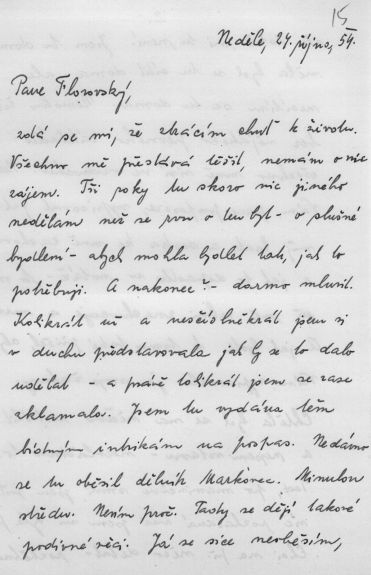 15
Neděle, 24. října, 54.
Pane Florovský,
zdá se mi, že ztrácím chuť k životu.
Všechno mě přestává těšit, nemám o nic
zájem. Tři roky tu skoro nic jiného
nedělám než se rvu o ten byt - o slušné
bydlení - abych mohla bydlet tak, jak to
potřebuji. A nakonec? - darmo mluvit.
Kolikrát už a nesčíslněkrát jsem si
v duchu představovala jak by se to dalo
udělat - a právě tolikrát jsem se zase
zklamala. Jsem tu vydána těm
bídným intrikám na pospas. Nedávno
se tu oběsil dělník Markovec. Minulou
středu. Nevím proč. Tady se dějí takové
podivné věci. Já se sice neoběsím,